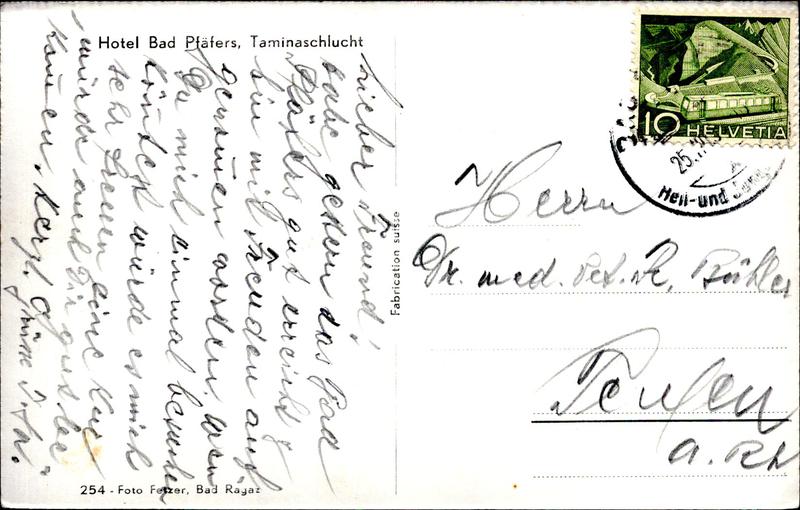 Hotel Bad Pfäfers, Taminaschlucht
Lieber Freund!
habe gestern das Bad
Pfäfers gut erreicht &
bin mit Freuden auf
genommen worden. wen
Du mich einmal besuchen
könntest würde es mich
sehr freuen eine Kur
würde auch Dir gut be-
kommen. Herzl.
Grüsse
254 - Foto Fetzer, Bad Ragaz
Fabrication suisse
10 HELVETIA
25.
Heil-und
Herrn
Dr. med. vet. R. Bühler
Teufen
A. Rh